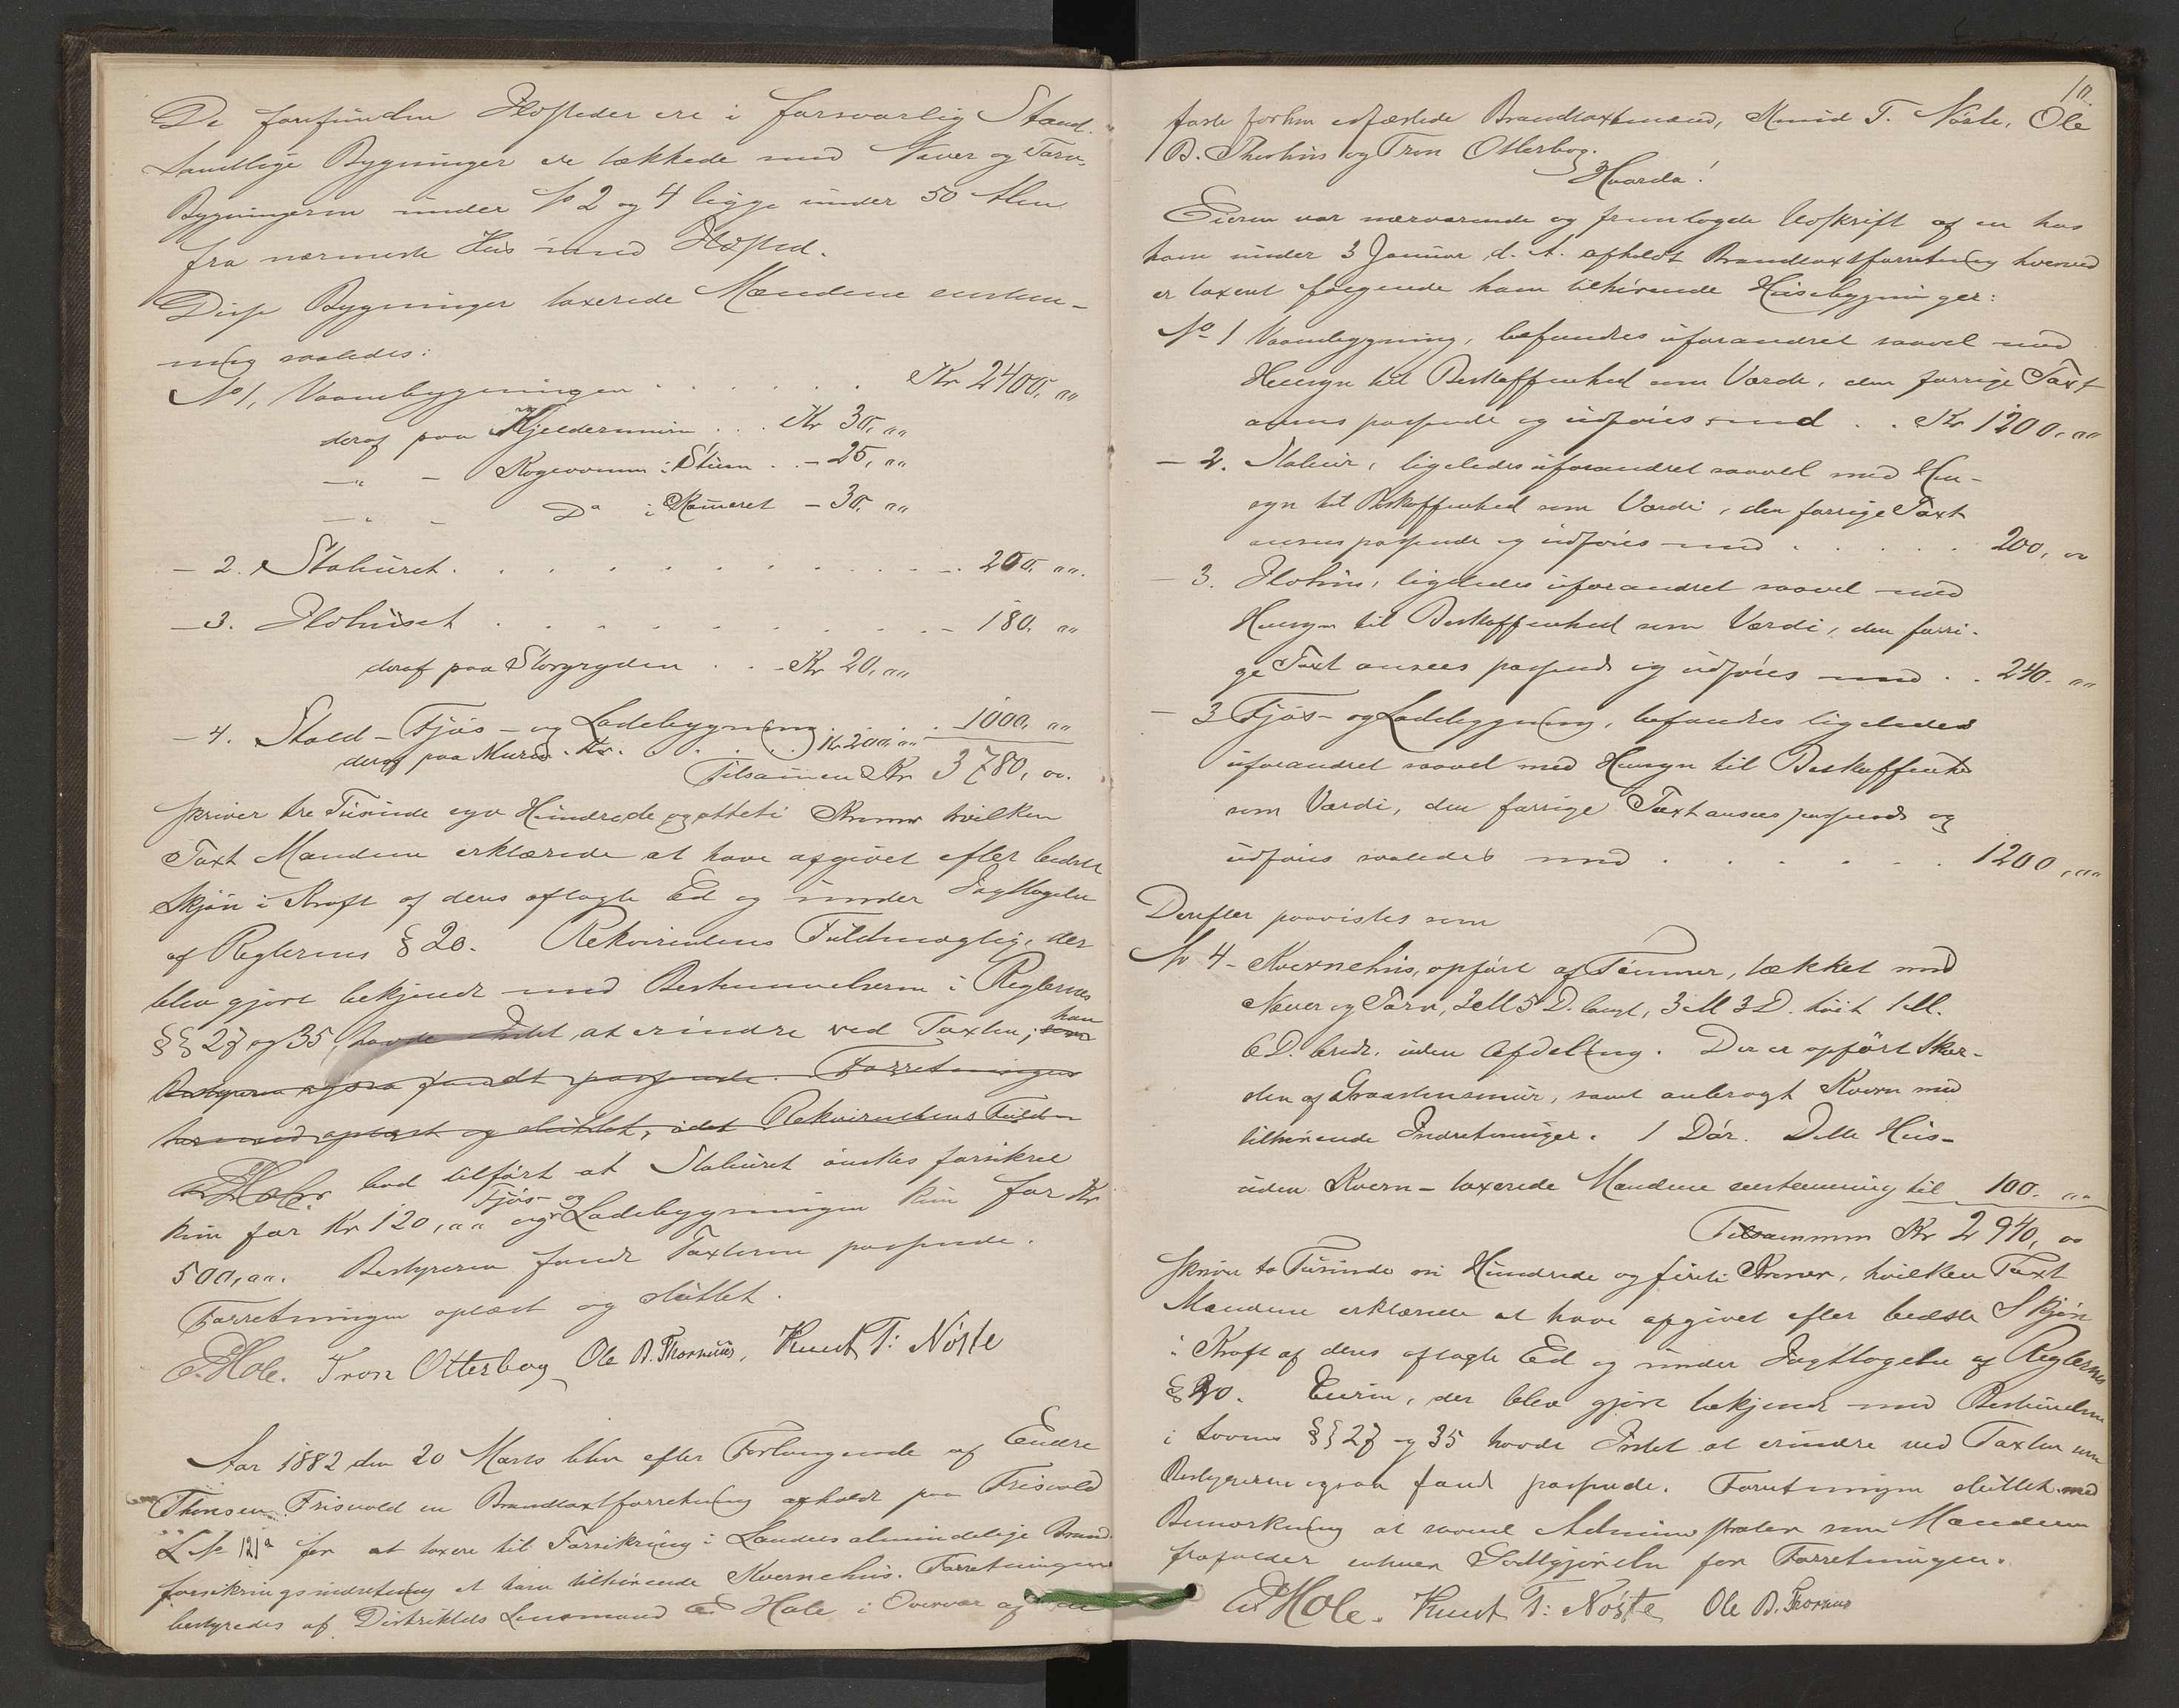 De forefundne Ildsteder ere i forsvarlig Stand.
Samtlige Bygninger ere tækkede med Næver og Torv.
Bygningerne under No 2 og 4 ligge under 50 Alen
fra nærmeste Hus med Ildsted.
Disse Bygninger taxerede Mændene enstem-
mig saaledes:
No 1, Vaanebygningen . . . . . . . Kr 2400, ""
deraf paa Kjeldermuren . . . Kr 30, ""
—"— - Kogeovnen i Stuen . . - 25, ""
—"— - Do i Kameret - 30, ""
- 2. Stabüret . . . . . . . . . . . - 200. "".
- 3. Ildhüset . . . . . . . . . . . - 180. ""
deraf paa Storgryden . . . Kr 20, ""
- 4. Stald - Fjøs - og Ladebygning . . . . 1000. ""
deraf paa Muren . Kr. . . . . . Kr 200, ""
Tilsammen Kr 3780, oo.
skriver tre Tusinde syv Hundrede og otteti Kroner hvilken
Taxt Mændene erklærede at have afgivet efter bedste
Skjøn i Kraft af deres aflagte Ed og under Iagttagelse
af Reglernes § 20. Rekvirentens Fuldmægtig, der
blev gjort bekjendt med Bestemmelserne i Reglernes
§§ 27 og 35, havde Intet at erindre ved Taxten, som
Bestyreren ogsaa fandt passende. Forretningen
hermed oplæst og sluttet, idet Rekvirentens Fuldm
E Hole. bad tilført at Stabüret ønskes forsikret
kun for Kr 120, "" og Fjøs- og Ladebygningen kun for Kr
500, "". Bestyreren fandt Taxterne passende.
Forretningen oplæst og sluttet.
E. Hole. Tron Otterbog Ole B. Thorhuus, Knut T: Nöste
Aar 1882 den 20 Marts blev efter Forlangende af Endre
Thorsen Frisvold en Brandtaxtforretning afholdt paa Frisvold
L No 121a for at taxere til Forsikring i Landets almindelige Brand-
forsikringsindretning et ham tilhørende Kvernehus. Forretningen
bestyredes af Distriktets Lensmand E Hole i Overvær af de
10.
faste forhen edfæstede Brandtaxtmænd, Knud T. Nöste, Ole
B. Thorhus og Tron Otterbog.
Hvorda!
Eieren var nærværende og fremlagde Udskrift af en hos
ham under 3 Januar d. A. afholdt Brandtaxtforretning hvorved
er taxeret følgende ham tilhørende Husebygninger:
No 1 Vaanebygning, befandtes uforandret saavel med
Hensyn til Beskaffenhed som Værdi, den forrige Taxt
ansees passende og udføres med . . Kr 1200, ""
- 2. Stabur, ligeledes uforandret saavel med Hen-
syn til Beskaffenhed som Værdi, den forrige Taxt
ansees passende og udføres med . . . . . 200, oo
- 3. Ildhus, ligeledes uforandret saavel med
Hensyn til Beskaffenhed som Værdi, den forri-
ge Taxt ansees passende og udføres med . . 240. ""
- 3 Fjøs- og Ladebygning, befandtes ligeledes
uforandret saavel med Hensyn til Beskaffenhed
som Værdi, den forrige Taxt ansees passende og
udføres saaledes med . . . . . . 1200, ""
Derefter paavistes som
No 4 - Kvernehus, opført af Tømmer, tækket med
Næver og Torv, 2 M 5 D. langt, 3 M 3 D. høit 1 M.
6 D. bredt, uden Afdeling. Der er opført Skor-
sten af Graastensmur, samt anbragt Kvern med
tilhørende Indretninger. 1 Dør. Dette Hus -
uden Kvern - taxerede Mændene enstemmig til 100. ""
Tilsammen Kr 2940, oo
skriver to Tusinde ni Hundrede og firti Kroner, hvilken Taxt
Mændene erklærede at have afgivet efter bedste Skjøn
i Kraft af deres aflagte Ed og under Iagttagelse af Reglernes
§ 20. Eieren, der blev gjort bekjendt med Bestemmelserne
i Lovens §§ 27 og 35 havde Intet at erindre ved Taxten som
Bestyreren ogsaa fandt passende. Forretningen sluttet med
Bemærkning at saavel Administrator som Mændene
frafalder enhver Godtgjørelse for Forretningen.
E Hole. Knut T: Nöste Ole B. Thorhus